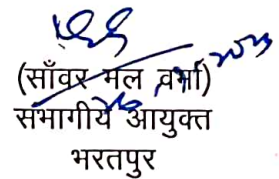 (साँवर मल वर्मा)
सभागीय आयुक्त
भरतपुर